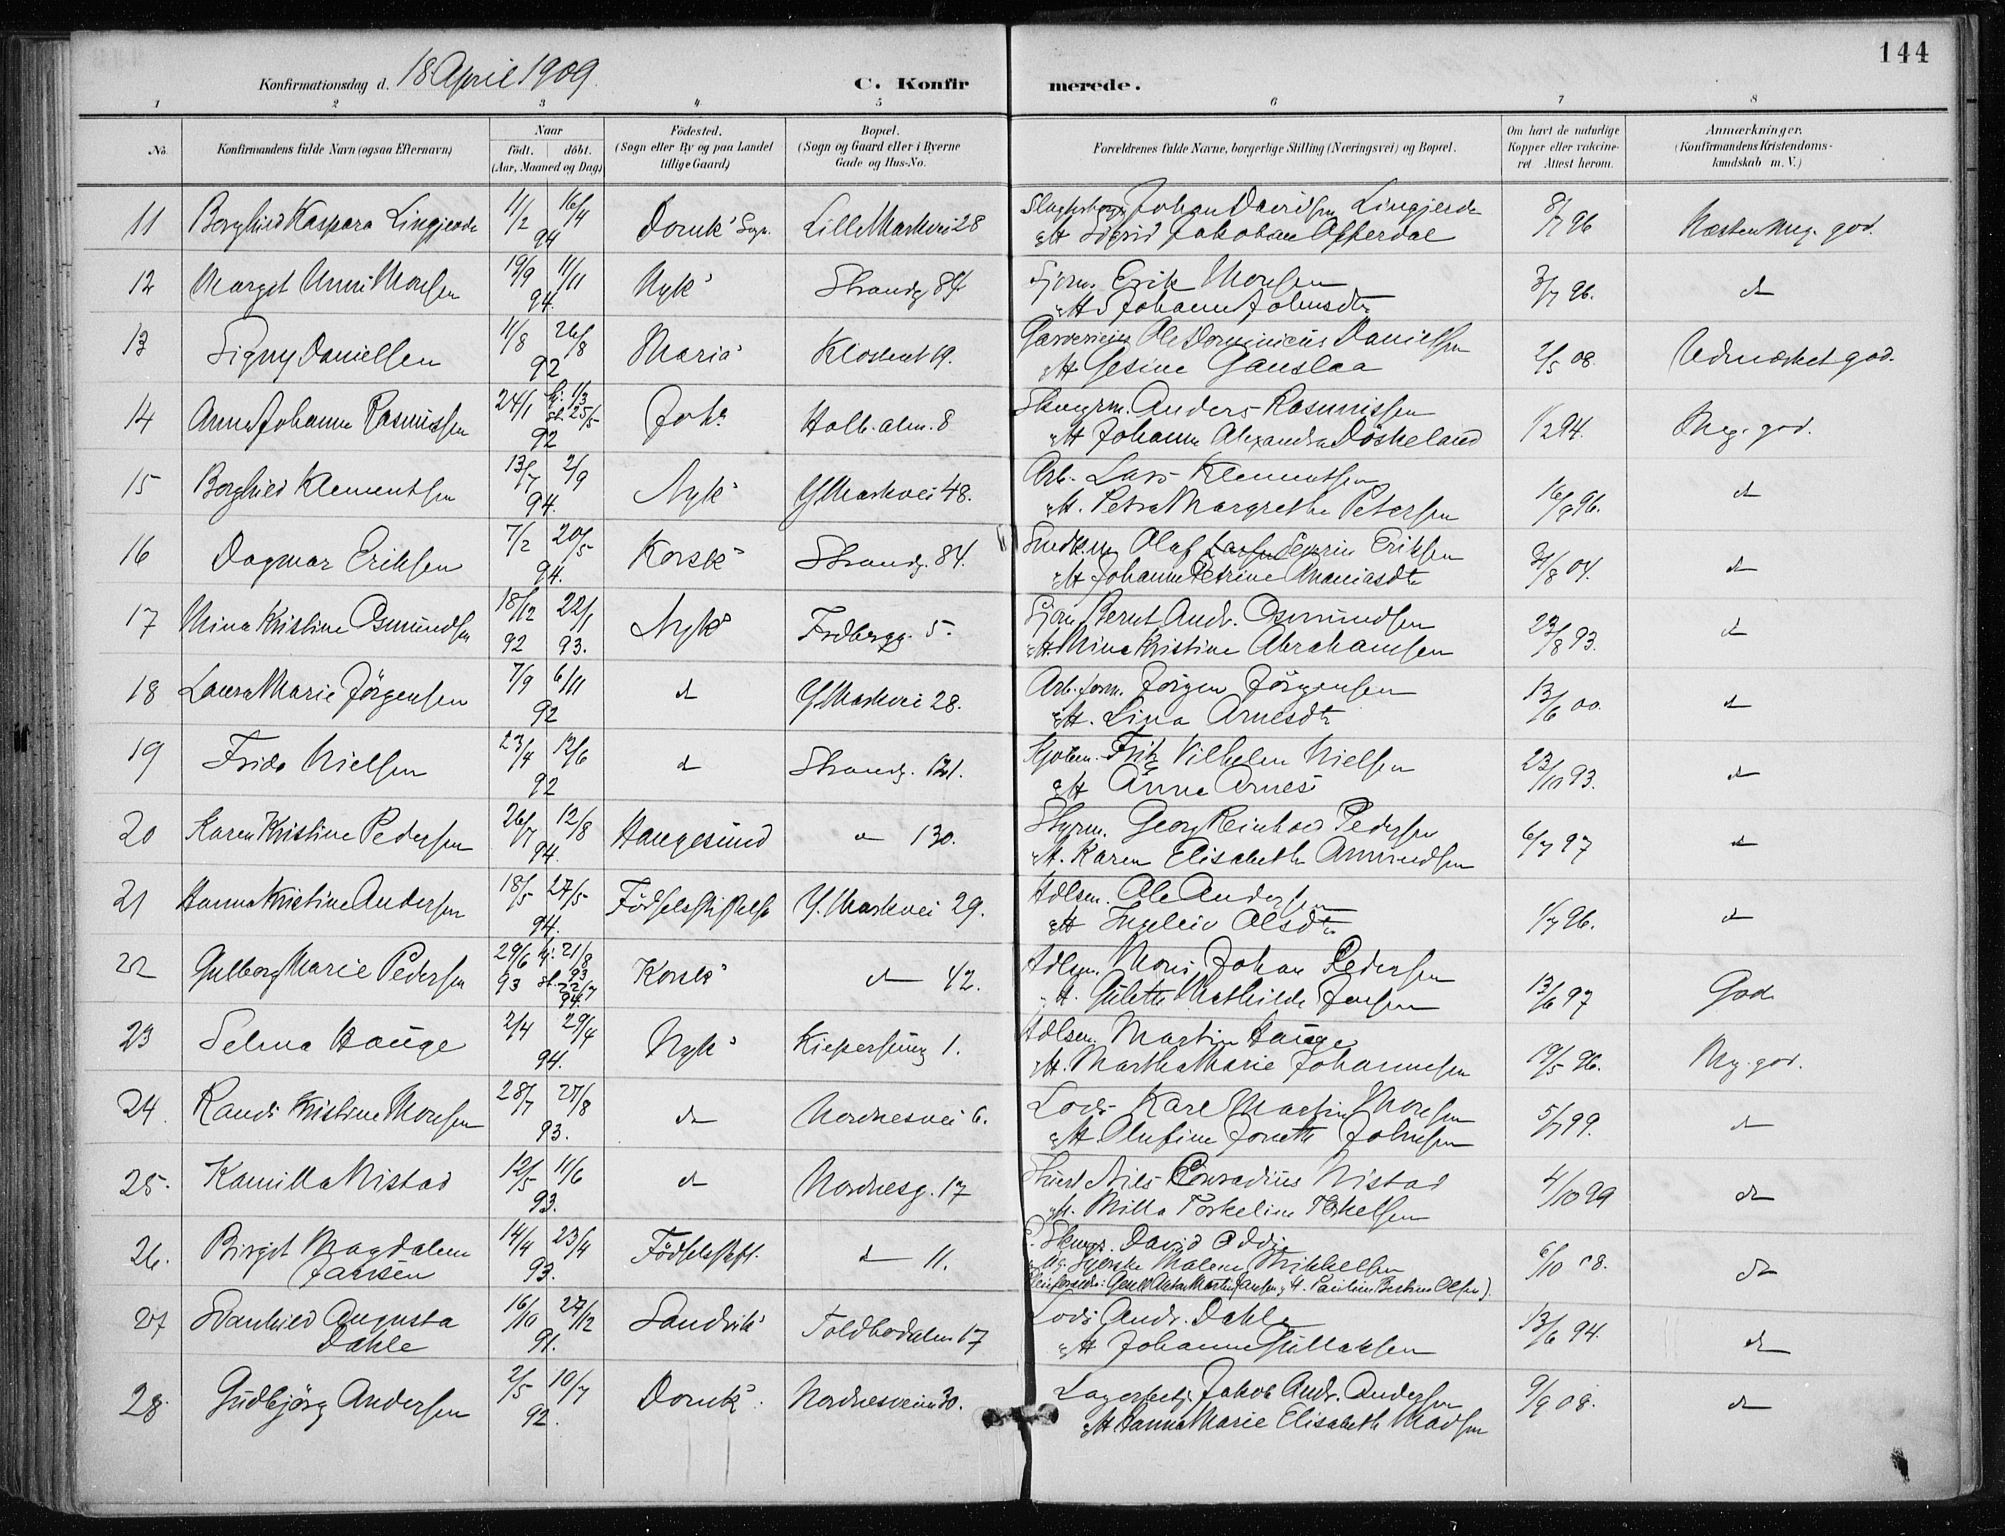 144
Konfirmationsdag d. 18 April 1909.
C. Konfirmerede.
1 2 3 4 5 6 7 8
No. Konfirmandens fulde Navn (ogsaa Efternavn) Naar født. døbt. (Aar, Maaned og Dag) Fødested. (Sogn eller By og paa Landet tillige Gaard) Bopæl. (Sogn og Gaard eller i Byerne Gade og Hus-No. Forældrenes fulde Navne, borgerlige Stilling (Næringsvei) og Bopæl. Om havt de naturlige Kopper eller vakcineret. Attest herom. Anmærkninger. (Konfirmandens Kristendomskundskab m. V.)
11 Borghild Kaspara Lingjerde 11/2 16/4 94 Domk. Sogn. Lille Markvei 28 Johan Davidsen Lingjerde 8/7 96 Næsten Meg. god.
& H. Sigrid Jakobine Afferdal
12 Margit Unni Monsen 19/9 11/11 94. Nyk. Strandg 84 Sjøm. Erik Monsen 3/7 96. do
& H. Johanne Johnsdtr
13 Signy Danielsen 11/8 26/8 92 Maria Klostert 19. Ole Dominicus Danielsen 2/5 08. Udmærket god.
& H. Gesine Gaaslaa
14 Anna Johanne Rasmussen 24/1 hj. 1/3 st. 25/5 92 Joh. Holb. alm. 8 Anders Rasmussen 1/2 94. Meg. god.
& H. Johanne Alexandra Döskeland
15 Borghild Klementsen 13/7 2/9 94. Nyk. Y Markvei 48. Arb. Lars Klementsen 16/9 96. do
& H. Petra Margrethe Petersen
16 Dagmar Eriksen 7/2 20/5 94. Korsk. Strandg. 84. Snedkm. Olaf Severin Eriksen 31/8 04. do
& H. Johanne Petrine Ananiasdtr
17 Mina Kristine Osmundsen 18/12 92 22/1 93. Nyk. Fredbergg. 5. Sjøm. Bernt Andr. Osmundsen 23/8 93. do
& H. Mina Kristine Abrahamsen
18 Laura Marie Jörgensen 7/9 6/11 92 do Y Markvei 28. Arb. form. Jörgen Jörgensen 13/6 00. do
& H. Lina Arnesdtr
19 Frida Nielsen 23/4 12/6 92 do Strandg. 121. Fritz Vilhelm Nielsen 23/10 93. do
& H. Anna Arnesi
20 Karen Kristine Pedersen 26/7 12/8 94. Haugesund do 130. Styrm. Georg Reinhard Pedersen 6/7 97 do
& H. Karen Elisabeth Amundsen
21 Hanna Kristine Andersen 18/5 27/5 94. Födselsstiftelse Y. Markvei 29. Hdlsm. Ole Andersen 1/7 96. do
& H. Ingeleiv Olsdtr
22 Gulborg Marie Pedersen 29/6 93 hj. 21/8 93 st. 22/7 94. Korsk. do 42. Hdlsm. Mons Johan Pedersen 13/6 97 God
& H. Gulette Mathilde Jensen
23 Selma Hauge 2/4 29/4 94. Nyk. 1. Hdlsm. Martin Hauge 19/5 96. Mg. god.
& H. Martha Marie Johannesen
24. Randi Kristine Monsen 28/7 27/8 93. do Nordnesvei 6. Lods Karl Martin Monsen 5/7 99. do
& H. Olufine Jonette Johnsen
25. Kamilla Nistad 12/5 11/6 93. do Nordnesg. 17 Nils Conradius Nistad 4/10 99 do
& H. Milla Torkeline Torkelsen
26. Birgit Magdalene Jansen 14/4 23/4 93. Födselsstift. do 11. David Oddig 6/10 08. do
Malene Mikkelsen
& H. Pauline Bertine Olsen).
27 Svanhild Augusta Dahle 16/10 27/12 91. Sandvik. Toldbodalm 17 Lods Andr. Dahle 13/6 94. do
& H. Johanne Gullaksen
28. Gudbjörg Andersen 2/5 10/7 92. Domk. Nordnesveien 30. Lagerbetj. Jakob Andr. Andersen 9/9 08. do
& H. Hanna Marie Elisabeth Madsen